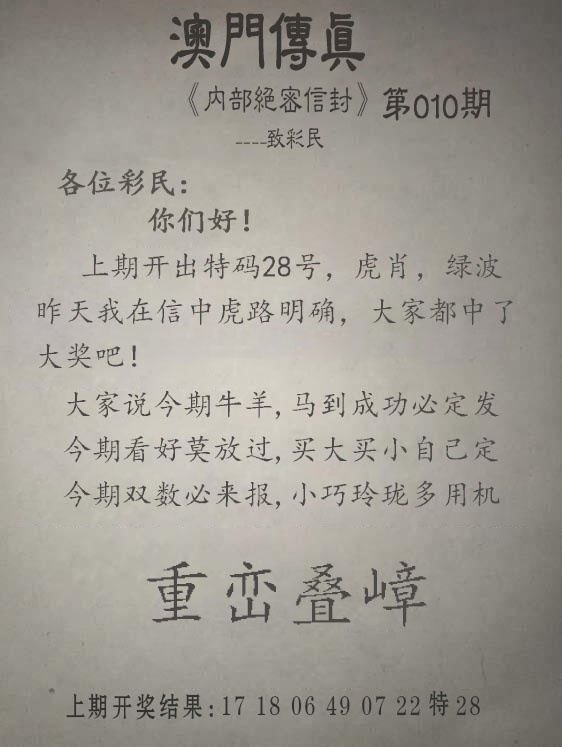 澳門傳眞
《内部絕密信封》第010期
----致彩民
各位彩民：
你们好！
上期开出特码28号，虎肖，绿波
昨天我在信中虎路明确，大家都中了
大奖吧！
大家说今期牛羊,马到成功必定发
今期看好莫放过,买大买小自己定
今期双数必来报,小巧玲珑多用机
重峦叠嶂
上期开奖结果:17 18 06 49 07 22 特 28